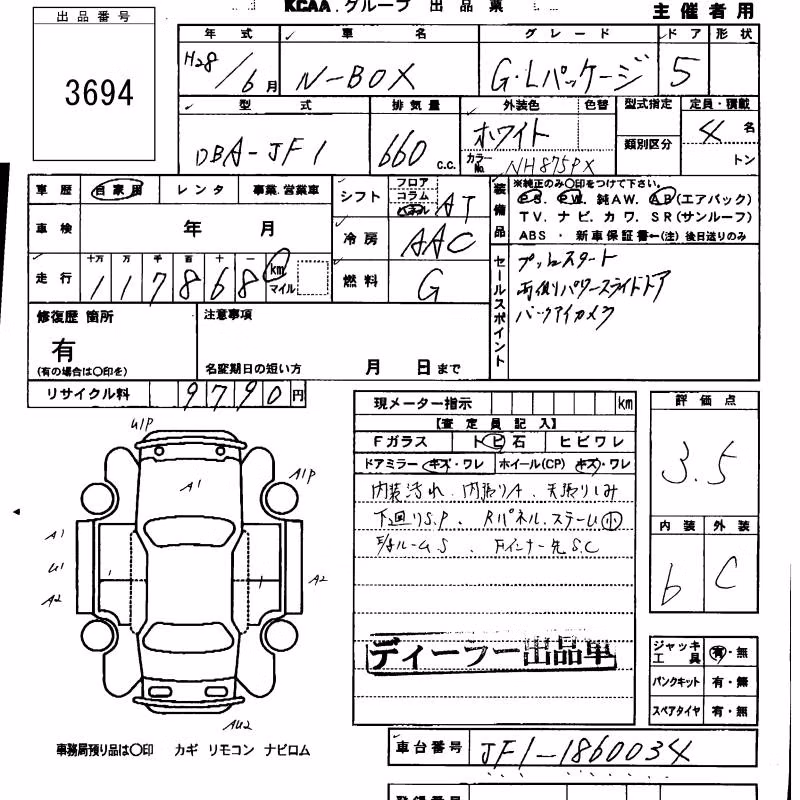 KCAA.グループ 出品票
主催者用
出品番号
3694
年式 車名 グレード ドア 形状
H28/6月 N-BOX G・Lパッケージ 5
型式 排気量 外装色 色替 型式指定 定員・積載
DBA-JF1 660 c.c. ホワイト 類別区分 4名
カラーNo. NH875PX トン
車歴 自家用 レンタ 事業.営業車
車検 年 月
走行 十万 万 千 百 十 一
117868 km マイル
シフト フロア コラム パネル AT
冷房 AAC
燃料 G
装備品
※純正のみ〇印をつけて下さい。
PS. PW. 純AW. AB(エアバック)
TV. ナビ. カワ. SR(サンルーフ)
ABS ・ 新車保証書←(注) 後日送りのみ
セールスポイント
プッシュスタート
両側パワースライドドア
バックアイカメラ
修復歴 箇所
有
(有の場合は〇印を)
注意事項
名変期日の短い方 月 日まで
リサイクル料 9790円
現メーター指示 km
【査定員記入】
Fガラス トビ石 ヒビワレ
ドアミラー キズ・ワレ ホイール(CP) キズ・ワレ
内装汚れ. 内張りA. 天張りしみ
下回りS.P. Rパネル.ステー 小
ルームS. Fインナー先S.C
ディーラー出品車
評価点
3.5
内装 外装
b C
ジャッキ工具 有・無
パンクキット 有・無
スペアタイヤ 有・無
U1P
A1
A1P
A1
U1
A2
A2
AU2
事務局預り品は〇印 カギ リモコン ナビロム
車台番号 JF1-1860034
登録番号